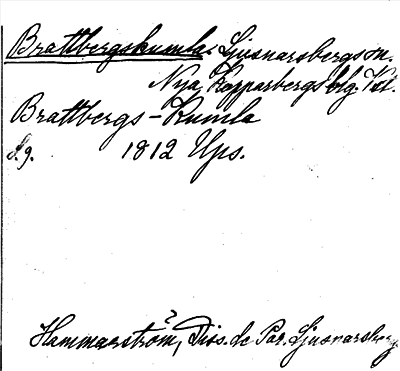 Brattbergskumla. Ljusnarsbergs sn.
Nya Kopparbergs blg. Vstl.
Brattbergs-Kumla
S.g. 1812 Ups.
?
Hammarström, Diss. de Par. Ljusnarsberg